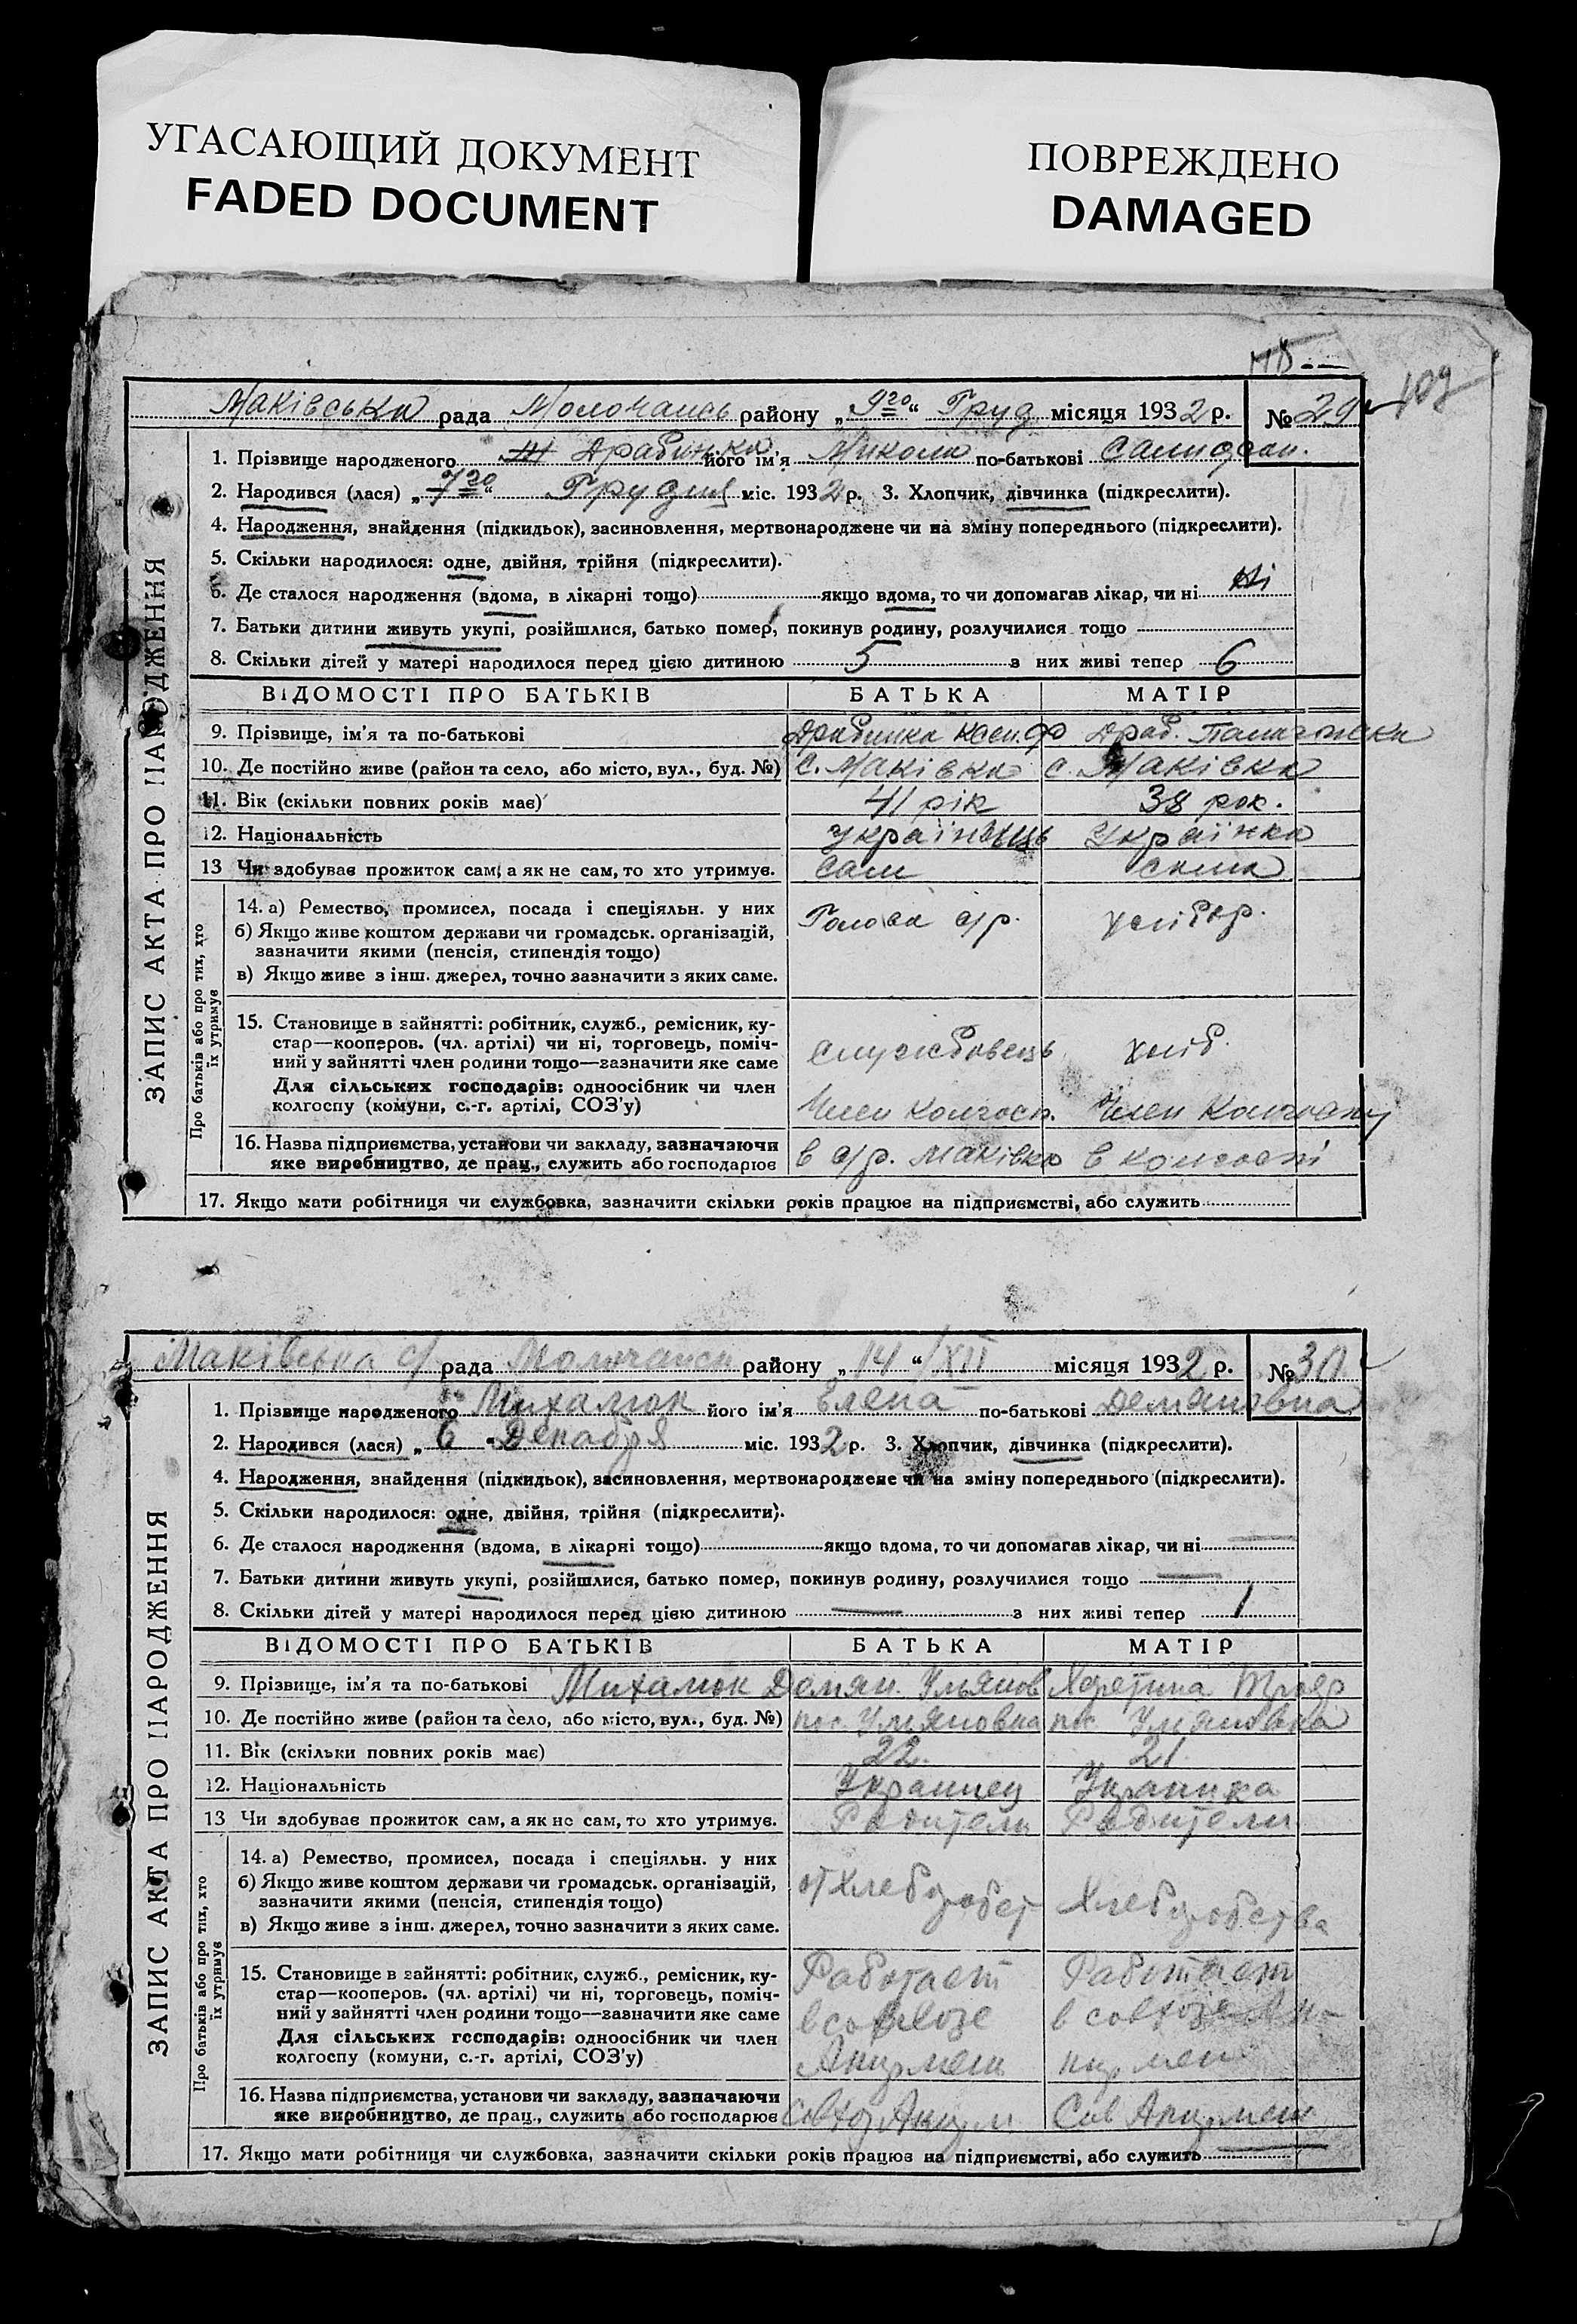 УГАСАЮЩИЙ ДОКУМЕНТ
FADED DOCUMENT
ПОВРЕЖДЕНО
DAMAGED
109
Маківська рада Молочанськ району „ 9го “ Груд місяця 1932 р. № 29
ЗАПИС АКТА ПРО НАРОДЖЕННЯ
1. Прізвище народженого Драбинка його ім'я Микола по-батькові
2. Народився (лася) „ 7го “ Грудня міс. 1932 р. 3. Хлопчик, дівчинка (підкреслити).
4. Народження, знайдення (підкидьок), засиновлення, мертвонароджене чи на зміну попереднього (підкреслити).
5. Скільки народилося: одне, двійня, трійня (підкреслити).
6. Де сталося народження (вдома, в лікарні тощо) якщо вдома, то чи допомагав лікар, чи ні Ні
7. Батьки дитини живуть укупі, розійшлися, батько помер, покинув родину, розлучилися тощо
8. Скільки дітей у матері народилося перед цією дитиною 5 з них живі тепер 6
ВІДОМОСТІ ПРО БАТЬКІВ БАТЬКА МАТІР
9. Прізвище, ім'я та по-батькові Драбинка Драб.
10. Де постійно живе (район та село, або місто, вул., буд. №) с. Маківка с. Маківка
11. Вік (скільки повних років має) 41 рік 38 рок.
12. Національність українець Українка
13 Чи здобуває прожиток сам, а як не сам, то хто утримує. Сам сама
Про батьків або про тих, хто їх утримує
14. а) Ремество, промисел, посада і спеціяльн. у них Голова с/р. хліброб.
б) Якщо живе коштом держави чи громадськ. організацій,
зазначити якими (пенсія, стипендія тощо)
в) Якщо живе з інш. джерел, точно зазначити з яких саме.
15. Становище в зайнятті: робітник, служб., ремісник, ку-
стар—кооперов. (чл. артілі) чи ні, торговець, поміч- службовець хліб.
ний у зайнятті член родини тощо—зазначити яке саме
Для сільських господарів: одноосібник чи член
колгоспу (комуни, с.-г. артілі, СОЗ'у) Член колгосп. Член Колгоспу
16. Назва підприємства, установи чи закладу, зазначаючи
яке виробництво, де прац., служить або господарює в с/р. Маківка в колгоспі
17. Якщо мати робітниця чи службовка, зазначити скільки років працює на підприємстві, або служить
Маківська с/ рада Молочанск району „ 14 “ XII місяця 1932 р. № 30
ЗАПИС АКТА ПРО НАРОДЖЕННЯ
1. Прізвище народженого Михалюк його ім'я Елена по-батькові Демяновна
2. Народився (лася) „ 6 “ Декабря міс. 1932 р. 3. Хлопчик, дівчинка (підкреслити).
4. Народження, знайдення (підкидьок), засиновлення, мертвонароджене чи на зміну попереднього (підкреслити).
5. Скільки народилося: одне, двійня, трійня (підкреслити).
6. Де сталося народження (вдома, в лікарні тощо) якщо вдома, то чи допомагав лікар, чи ні
7. Батьки дитини живуть укупі, розійшлися, батько помер, покинув родину, розлучилися тощо
8. Скільки дітей у матері народилося перед цією дитиною — з них живі тепер 1
ВІДОМОСТІ ПРО БАТЬКІВ БАТЬКА МАТІР
9. Прізвище, ім'я та по-батькові Михалюк Демян. Ульянов Харетина
10. Де постійно живе (район та село, або місто, вул., буд. №) пос. Ульяновка пос Ульяновка
11. Вік (скільки повних років має) 22. 21.
12. Національність Украинец Украинка
13 Чи здобуває прожиток сам, а як не сам, то хто утримує. Родители Родители
Про батьків або про тих, хто їх утримує
14. а) Ремество, промисел, посада і спеціяльн. у них
б) Якщо живе коштом держави чи громадськ. організацій, от Хлебороб Хлеборобства
зазначити якими (пенсія, стипендія тощо)
в) Якщо живе з інш. джерел, точно зазначити з яких саме.
15. Становище в зайнятті: робітник, служб., ремісник, ку- Работает Работает
стар—кооперов. (чл. артілі) чи ні, торговець, поміч-
ний у зайнятті член родини тощо—зазначити яке саме в совхозе в совхозе
Для сільських господарів: одноосібник чи член
колгоспу (комуни, с.-г. артілі, СОЗ'у)
16. Назва підприємства, установи чи закладу, зазначаючи
яке виробництво, де прац., служить або господарює Совхоз Сов
17. Якщо мати робітниця чи службовка, зазначити скільки років працює на підприємстві, або служить